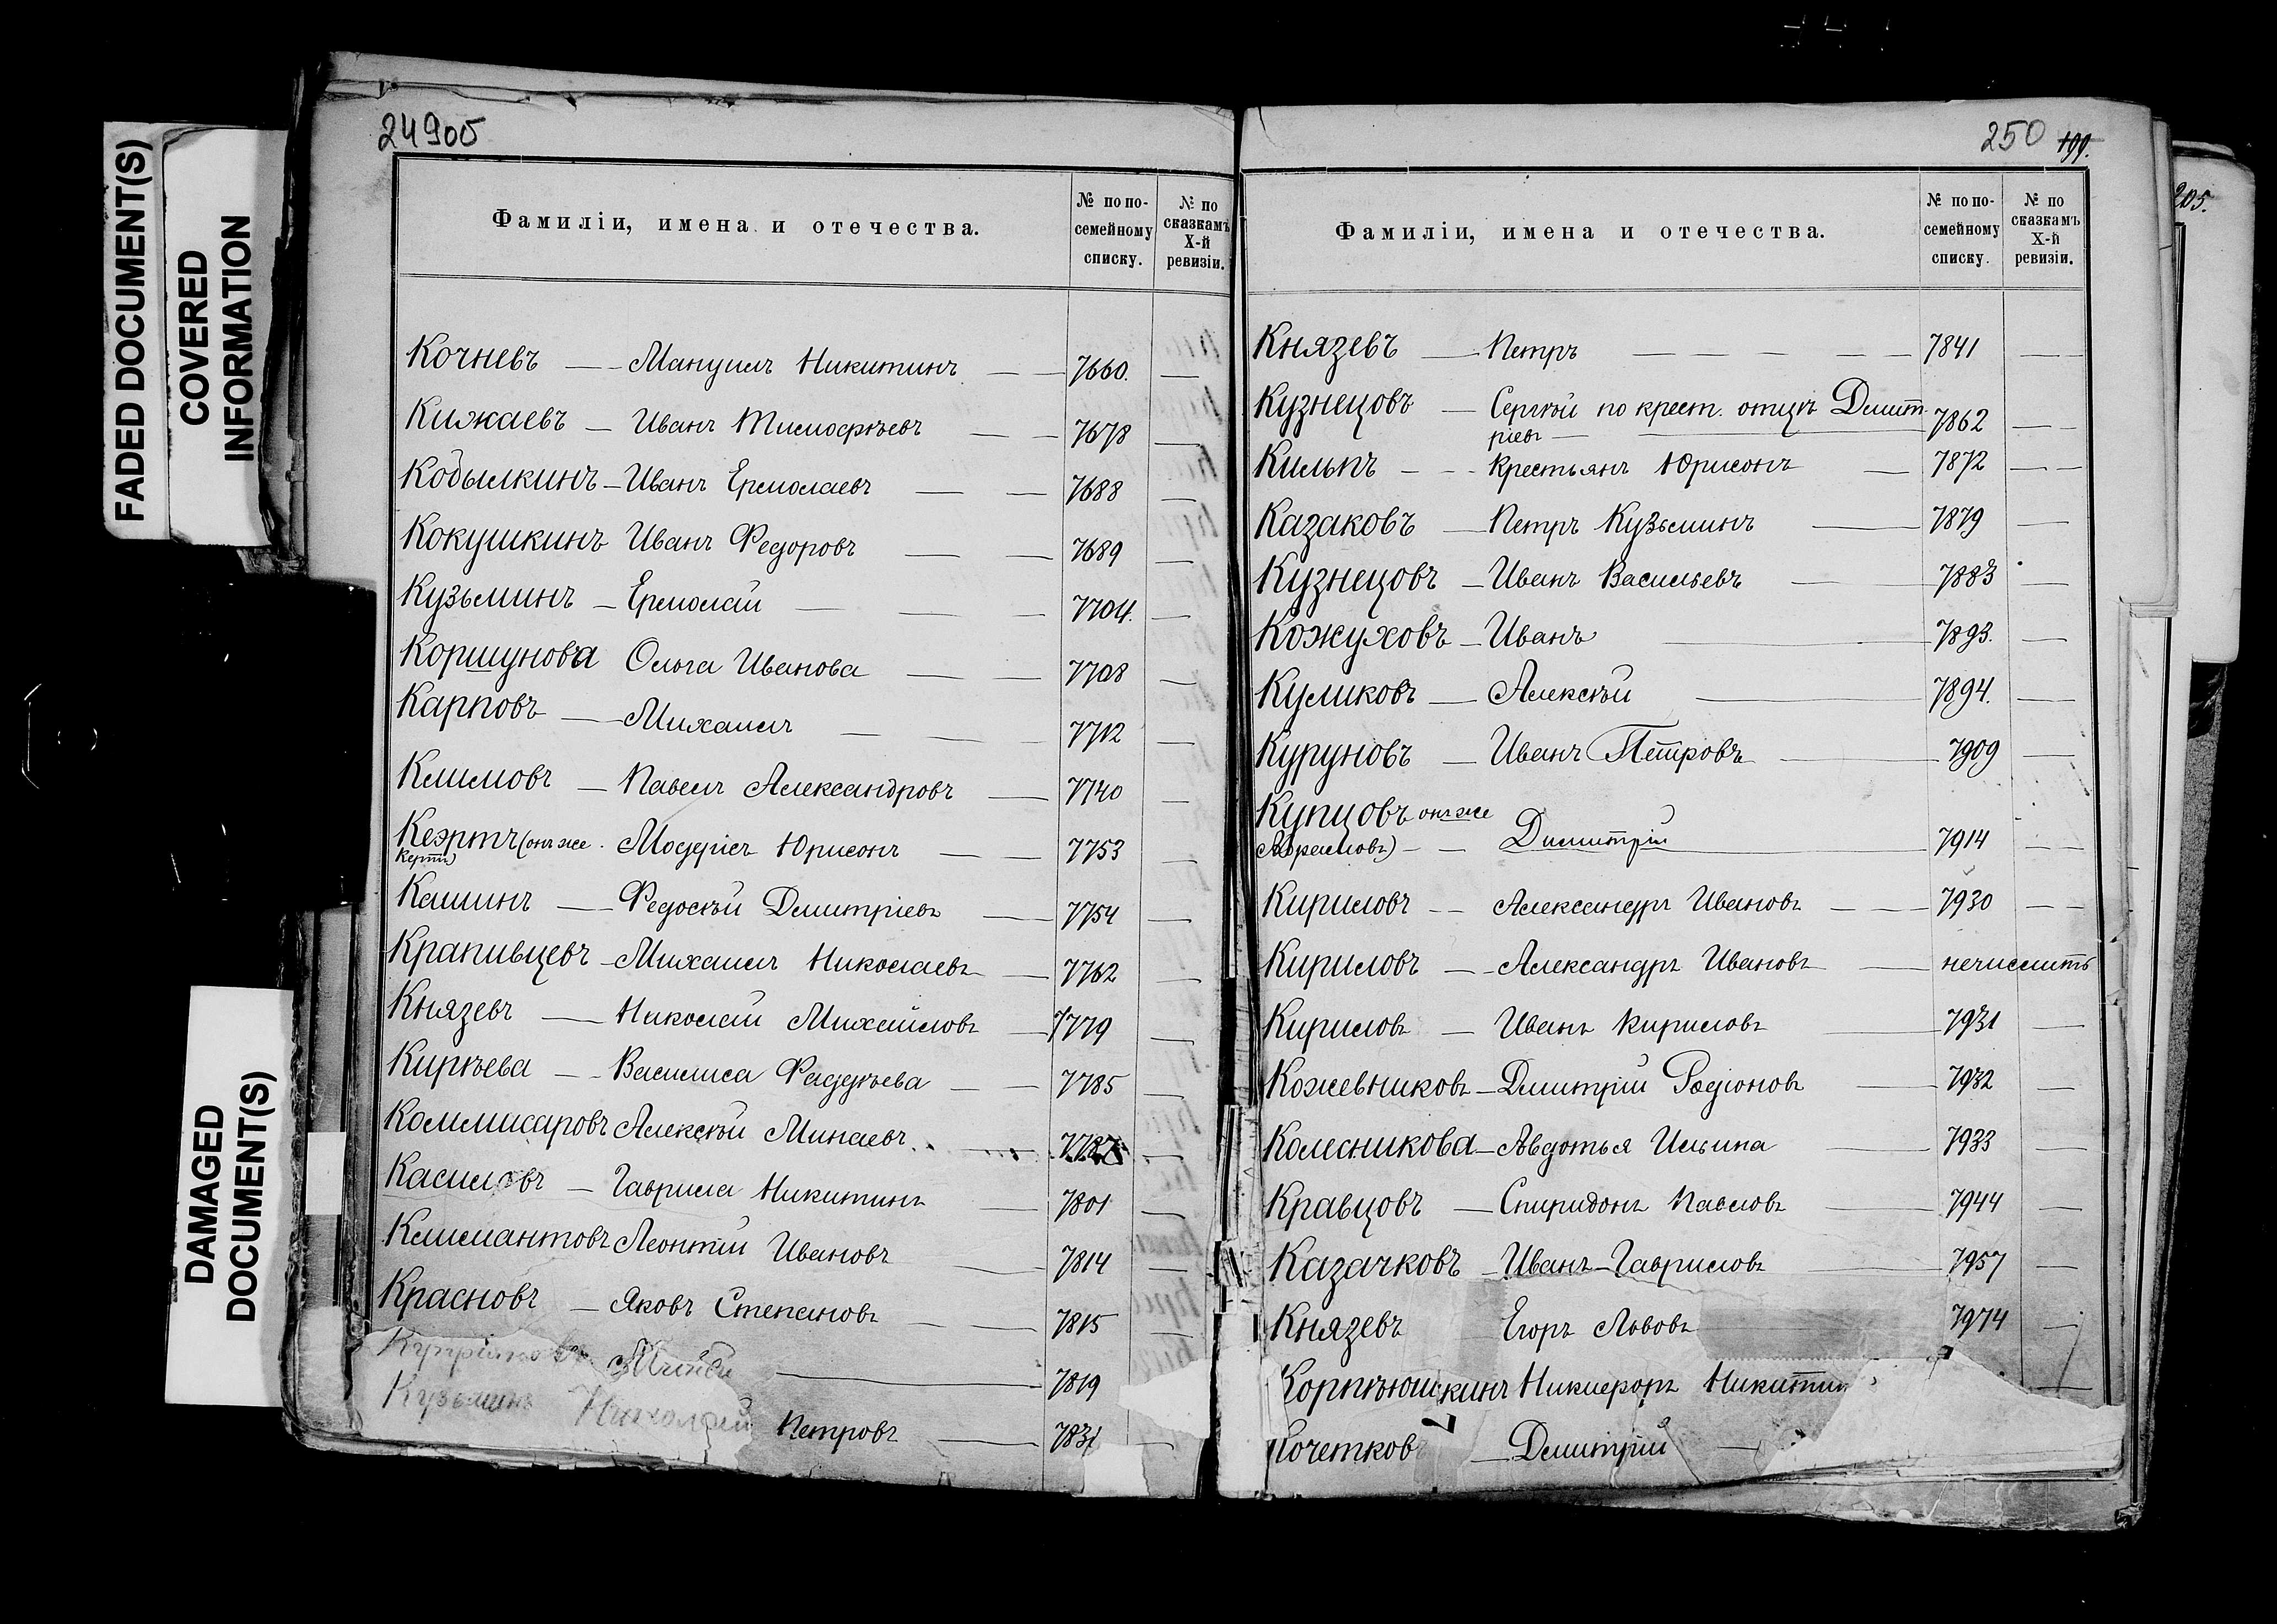 FADED DOCUMENT(S)
COVERED
INFORMATION
DAMAGED
DOCUMENT(S)
249об
Фамиліи, имена и отечества. № по по-семейному списку. № по сказкамъ X-й ревизіи.
Кочневъ — Мануилъ Никитинъ — — 7660. —
Кижаевъ — Иванъ Тимофѣевъ — — 7678 —
Кобылкинъ — Иванъ Ермолаевъ — — 7688 —
Кокушкинъ Иванъ Федоровъ — — 7689 —
Кузьминъ — Ермолай — — — 7704. —
Коршунова Ольга Иванова — — 7708 —
Карповъ — Михаилъ — — — 7712 —
Климовъ — Павелъ Александровъ — 7740 —
Кеэртъ (онъ же
Кертъ) Модрисъ Юрисонъ — — 7753 —
Кашинъ — Федосѣй Дмитріевъ — 7754 —
Крапивцевъ — Михаилъ Николаевъ — 7762 —
Князевъ — Николай Михайловъ — 7779 —
Кирѣева — Василиса Фаддѣева — — 7785 —
Коммисаровъ Алексѣй Минаевъ. —
Касиловъ — Гаврила Никитинъ — 7801 —
Климантовъ Леонтій Ивановъ — 7814 —
Красновъ — Яковъ Степановъ — — 7815 —
Купріяновъ — 7819
Кузьминъ Николай Петровъ — 7831 —
250 199.
205.
Фамиліи, имена и отечества. № по по-семейному списку. № по сказкамъ X-й ревизіи.
Князевъ — Петръ — — — — — 7841 — —
Кузнецовъ — Сергѣй по крест. отцѣ Дмит
ріевъ — — 7862 — —
Кильпъ — — Крестьянъ Юрисонъ — 7872 — —
Казаковъ — Петръ Кузьминъ — 7879 —
Кузнецовъ — Иванъ Васильевъ — 7883 —
Кожуховъ — Иванъ — 7893. —
Куликовъ — Алексѣй — 7894. —
Куруновъ — Иванъ Петровъ — 7909 —
Купцовъ онъ же
Абрамовъ) — — Димитрій — 7914 — —
Кириловъ — — Александръ Ивановъ — — 7930 — —
Кириловъ — — Александръ Ивановъ — нечислить
Кириловъ — Иванъ Кириловъ — 7931 —
Кожевниковъ — Дмитрій Родіоновъ — 7932 —
Колесникова — Авдотья Ильина — 7933 —
Кравцовъ — Спиридонъ Павловъ — 7944 —
Казачковъ — Иванъ Гавриловъ — 7957 —
Князевъ Егоръ Львовъ 7974 —
Корпѣюшкинъ Никифоръ Никитин —
Кочетков — Дмитрій —